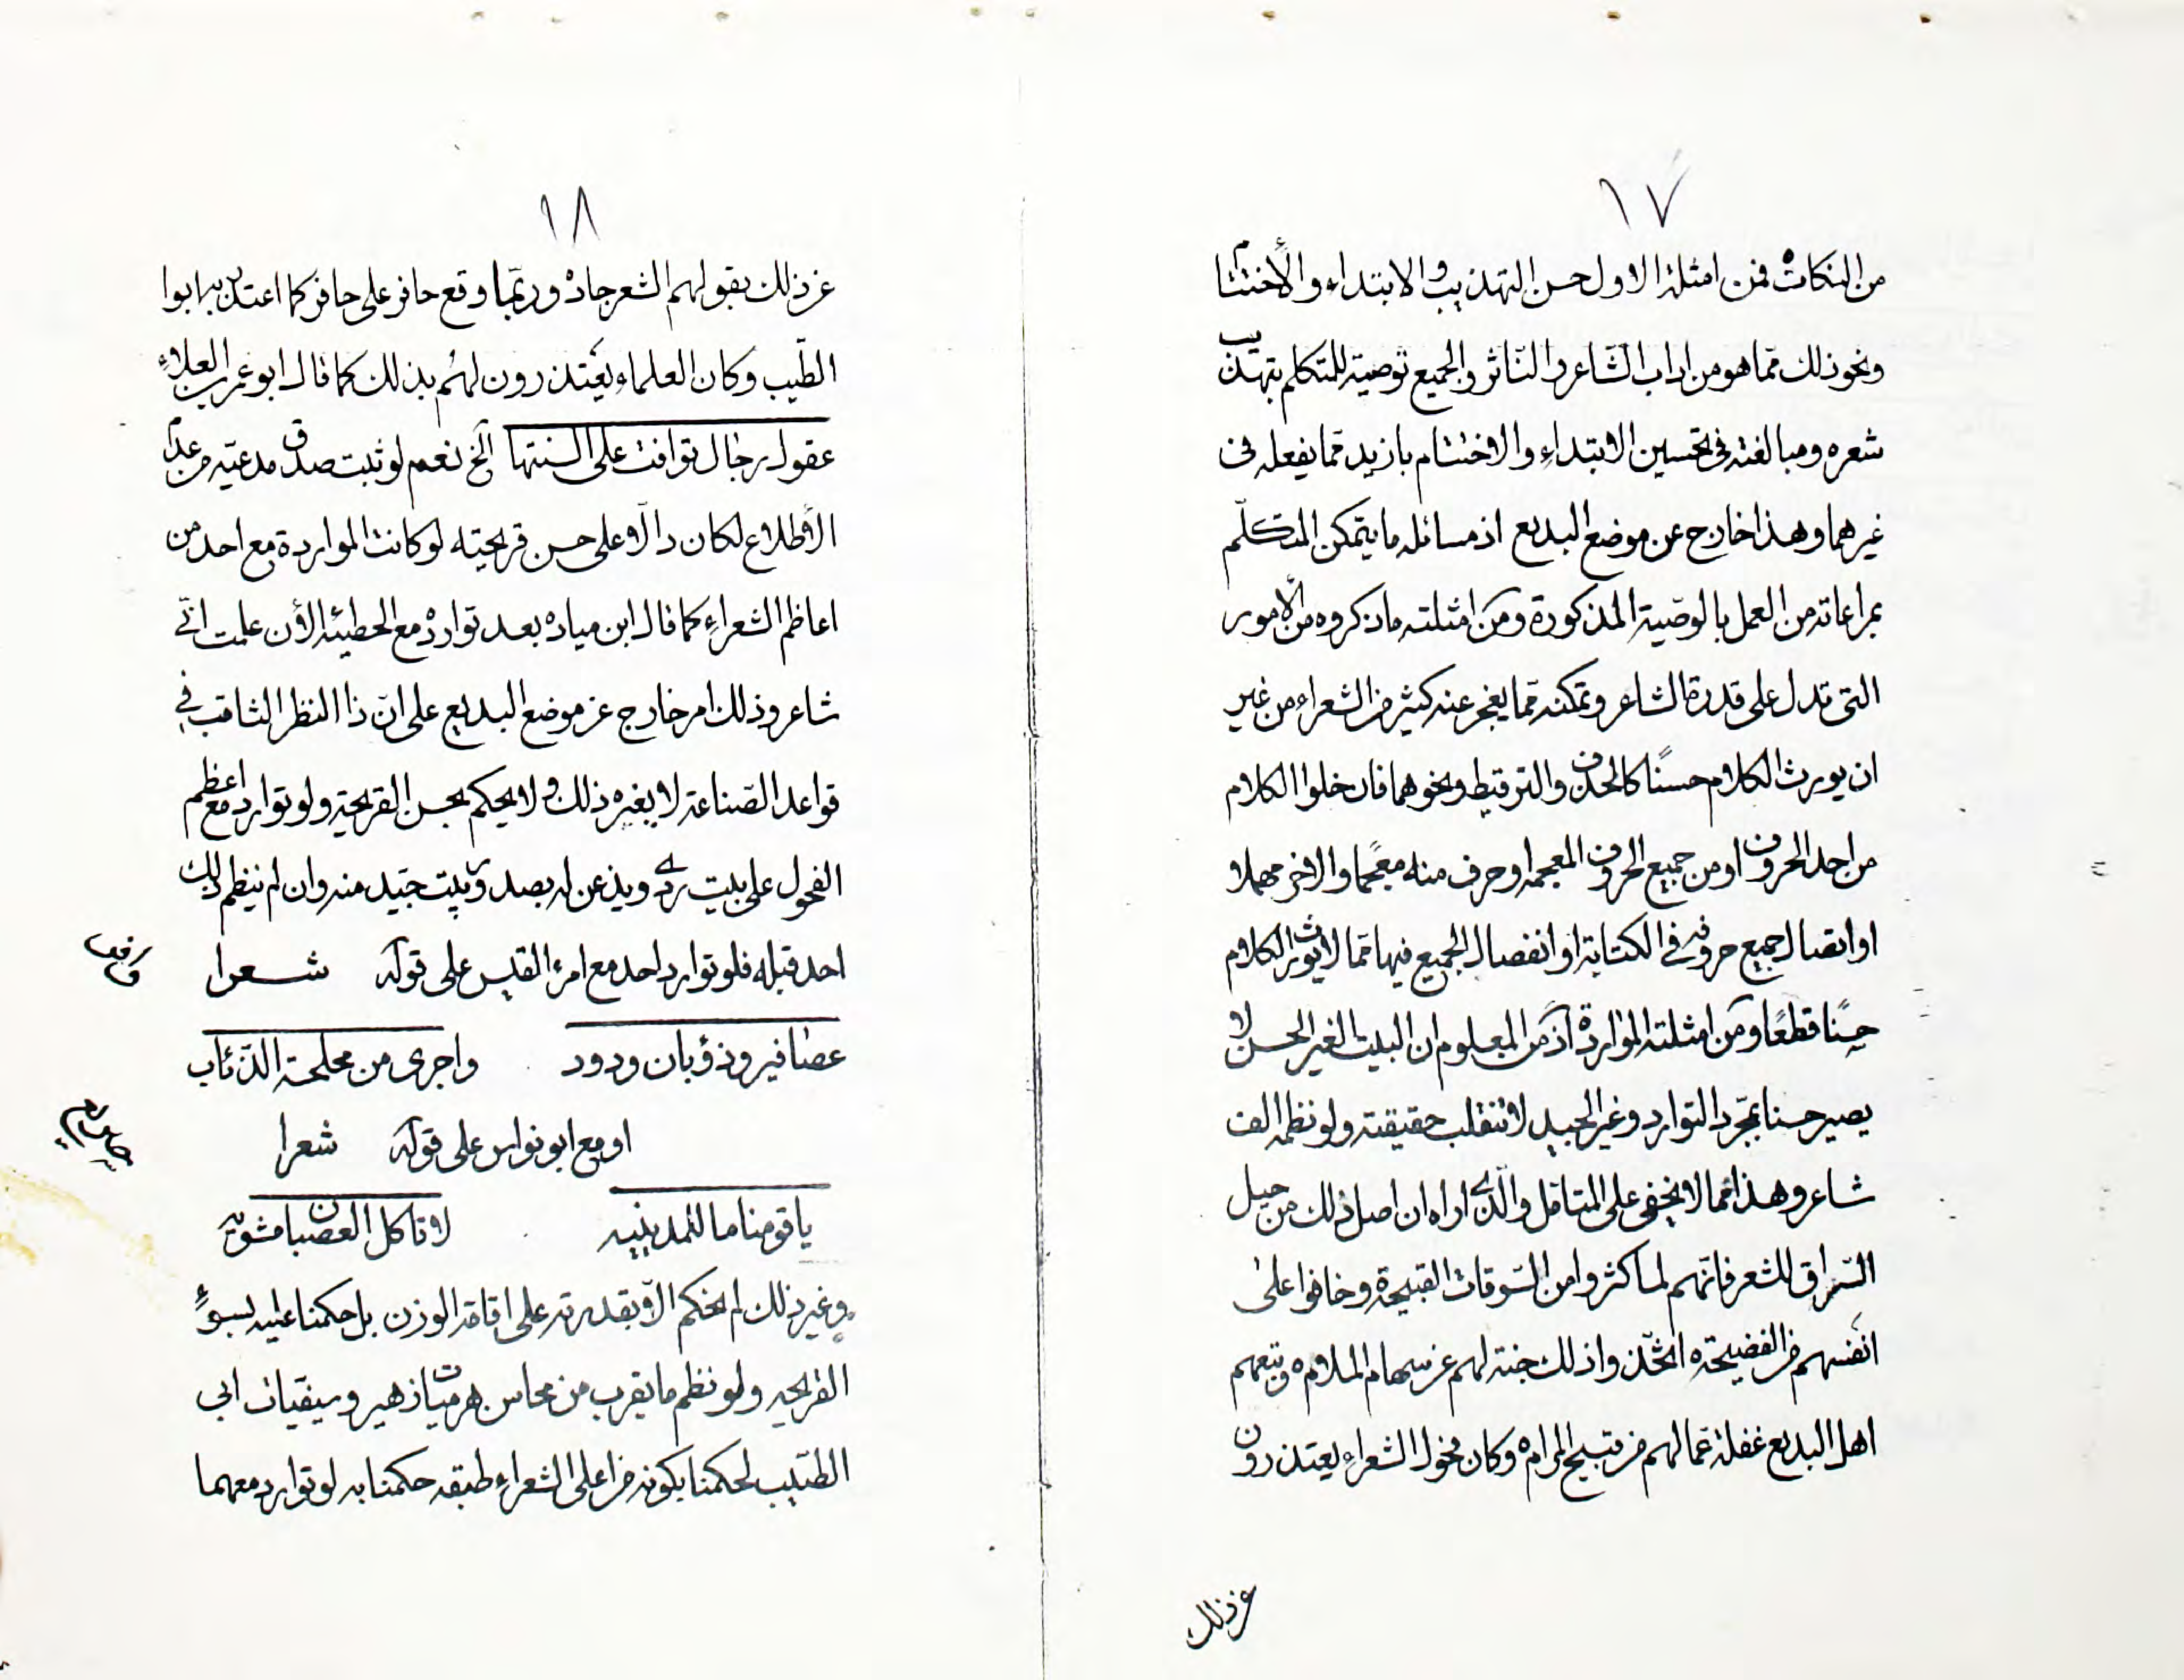 ١٧
من النكات فمن امثلة الاول حسن التهذيب والابتداء والأختتام
ونحو ذلك ممّا هو من اداب الشّاعر والنّاثر والجميع توصية للمتكلم بتهذيب
شعره ومبالغته فى تحسين الابتداءِ والاختتام بازيد ممّا يفعله فى
غيرهما وهذا خارج عن موضع البديع اذ مسائله ما يتمكن المتكلّم
بمراعاته من العمل بالوصّية المذكورة ومن امثلته ما ذكروه من الأمور
التى تدل على قدرة الشاعر وتمكنه ممّا يعجز عنه كثير من الشعراء من غير
ان يورث الكلام حسنًا كالحذف والترقيط ونحوهما فان خلوا الكلام
من احد الحروف او من جميع الحروف المعجمه او حرف منه معجمًا والاخر مهملا
او اتصال جميع حروفه فى الكتابة او انفصال الجميع فيها ممّا لا يورث الكلام
حسنًا قطعًا ومن امثلته المواردة اذ من المعلوم ان البيت الغير الحسن لا
يصير حسنا بمجّرد التوارد وغير الجيد لا تنقلب حقيقته ولو نظمه الف
شاعر وهذا مما لا يخفى على المتامّل والّذى اراه ان اصل ذلك من حيل
السّراق للشعر فانّهم لما كثروا من السّرقات القبيحة وخافوا على
انفسهم من الفضيحته اتخّذوا ذلك جنة لهم عن سهام الملامه وتبعهم
اهل البديع غفلة عمّا لهم من قبيح المرام وكان فحول الشعراءِ يعتذرون
عن ذلك
١٨
عن ذلك بقولهم الشعر جادة وربّما وقع حافر على حافر كما اعتذر به ابوا
الطّيب وكان العلماء يعتذرون لهم بذلك كما قال ابو عمر بن العلاءِ
عقول رجال توافت على السنتها الخ نعم لو ثبت صدق مدعيّه من عدم
الأطلاع لكان دالّا على حسن قريحته لو كانت المواردة مع احد من
اعاظم الشعراءِ كما قال ابن مياده بعد توارده مع الحطيئه الأن علمت انّى
شاعر وذلك امر خارج عن موضع البديع على انّ ذا النظر الثاقب فى
قواعد الصّناعة لا يغره ذلك ولا يحكم بحسن القريحة ولو توارد مع اعظم
الفحول على بيت ردى ويذعن له بصدور بيت جيّد منه وان لم ينظم ذلك
احد قبله فلو توارد احد مع امرء القيس على قوله شعرا
عصافير وذؤبان ودود واجرى من مجلحة الذّئاب
او مع ابو نواس على قوله شعرا
يا قومنا ما للمدينيه لا تاكل العصبان مشويه
وغير ذلك لم نحكم الّا بقدرته على اقامة الوزن بل حكمنا عليه بسوءِ
القريحه ولو نظم ما يقرب من محاسن هرميّات زهير وسيفيات ابى
الطّيب لحكمنا بكونه من اعلى الشعراءِ طبقه حكمنا به لو توارد معهما